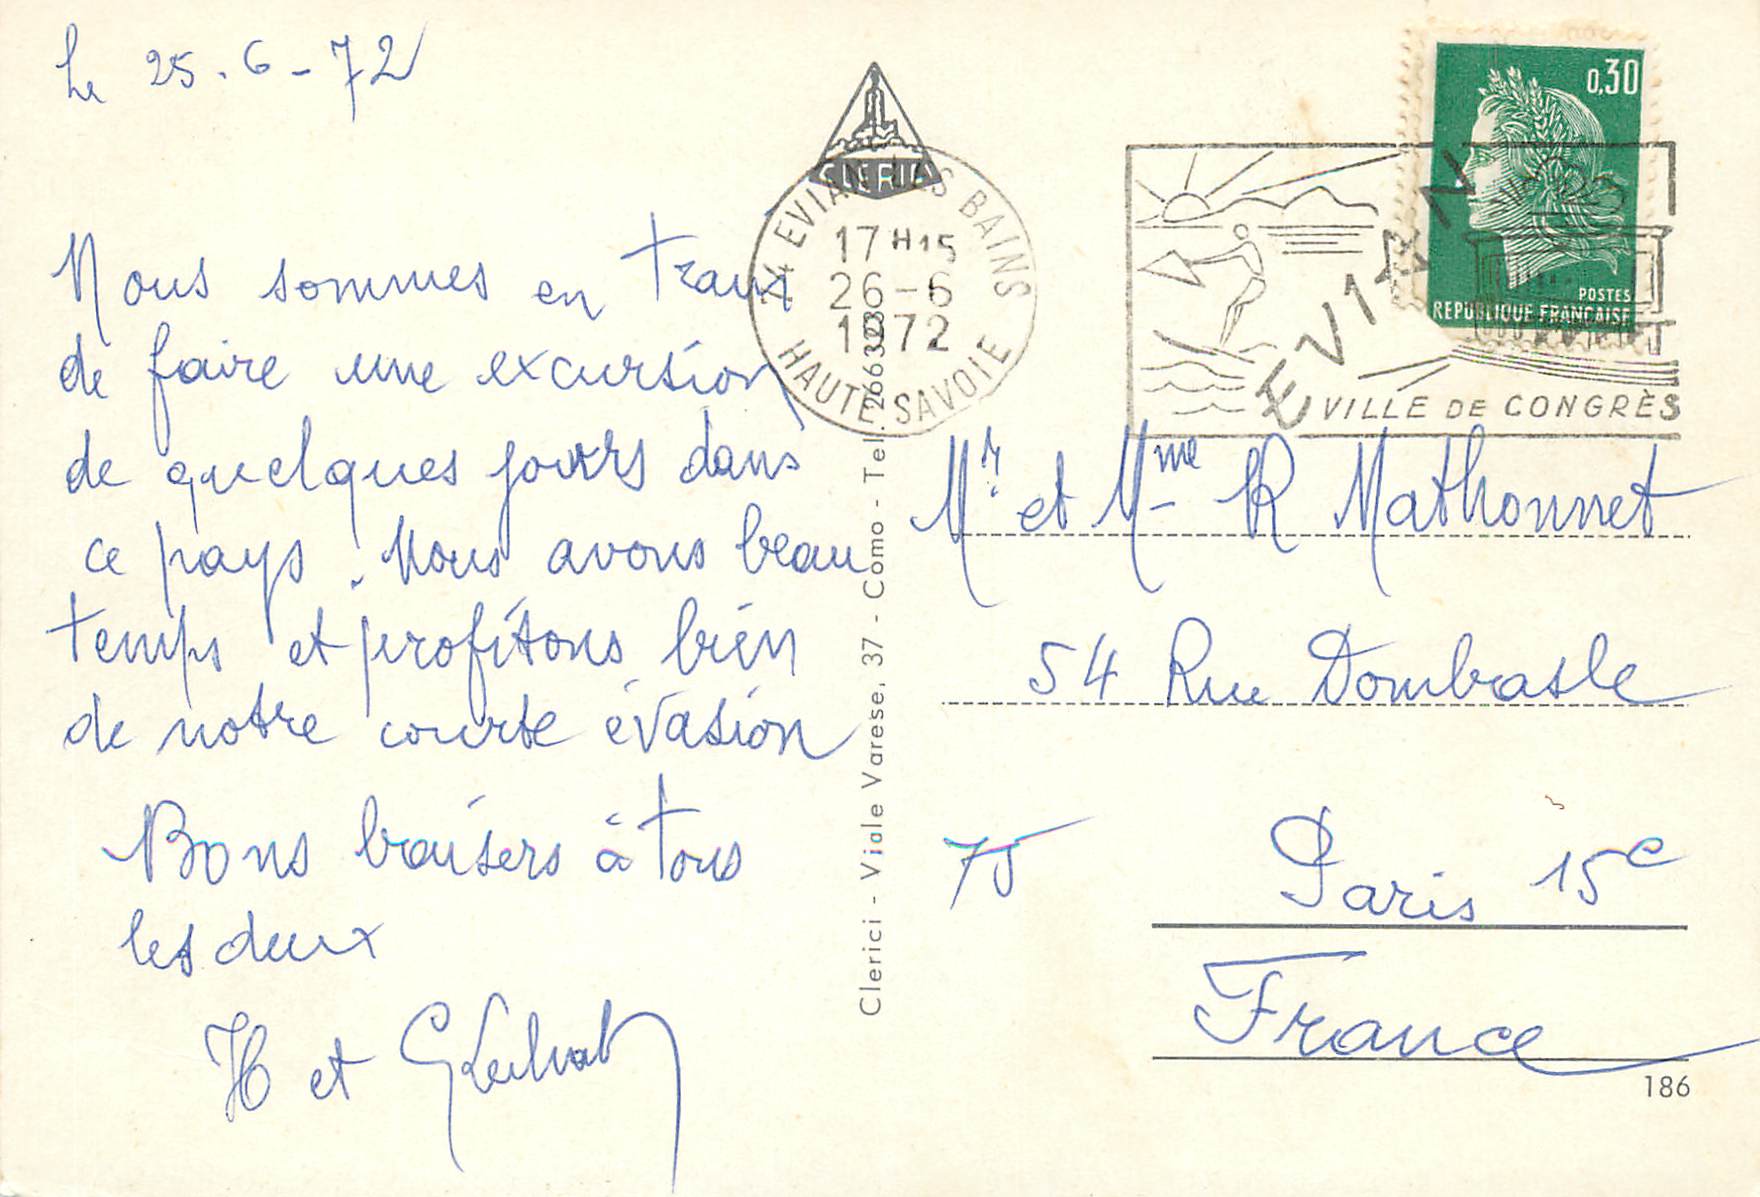 Le 25.6-72
Nous sommes en train
de faire une excursion
de quelques jours dans
ce pays. Nous avons beau
temps et profitons bien
de notre courte évasion
Bons baisers à tous
les deux
H et G
CLERICI
74 EVIAN LES BAINS
17 H 15
26-6
1972
HAUTE-SAVOIE
Clerici - Viale Varese, 37 - Como - Tel. 266330
EVIAN
VILLE DE CONGRÈS
0,30
POSTES
REPUBLIQUE FRANÇAISE
Mr et Mme R Mathonnet
54 Rue Dombasle
75 Paris 15e
France
186